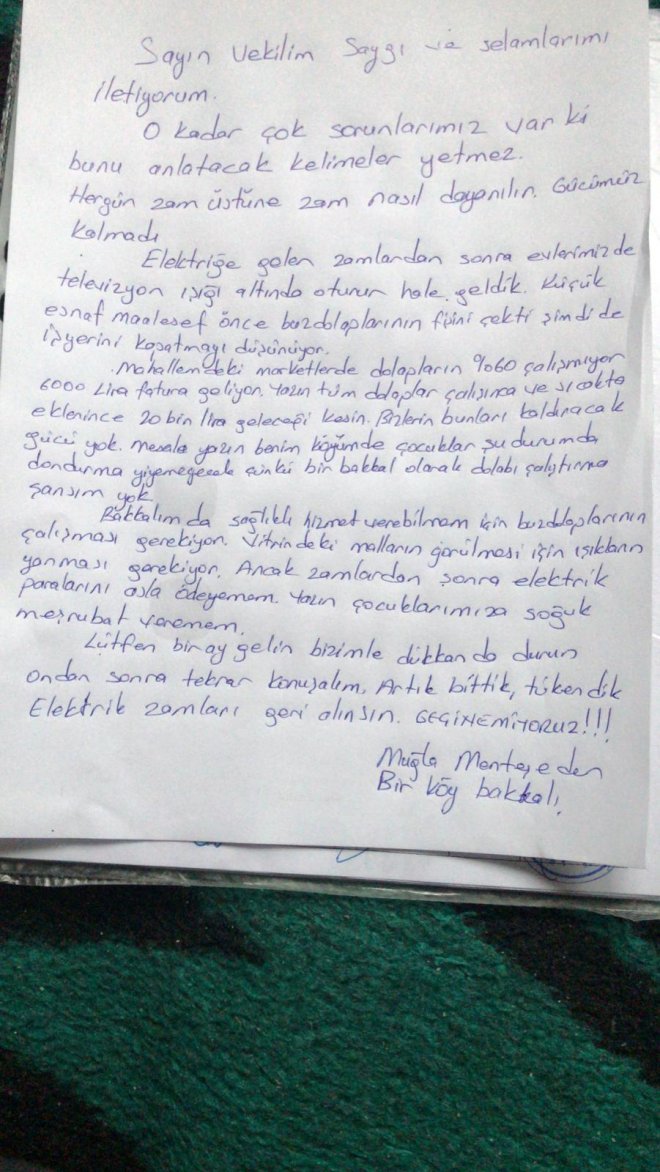 Sayın Vekilim Saygı ve selamlarımı
iletiyorum.
O kadar çok sorunlarımız var ki
bunu anlatacak kelimeler yetmez.
Hergün zam üstüne zam nasıl dayanılın. Gücümüz
kalmadı
Elektriğe gelen zamlardan sonra evlerimizde
televizyon ışığı altında oturur hale geldik. Küçük
esnaf maalesef önce buzdolaplarının fişini çekti şimdi de
işyerini kapatmayı düşünüyor.
Mahallemdeki marketlerde dolapların %60 çalışmıyor
6000 Lira fatura geliyor. Yazın tüm dolaplar çalışınca ve sıcakta
eklenince 20 bin lira geleceği kesin. Bizlerin bunları kaldıracak
gücü yok. Mesela yazın benim köyümde çocuklar şu durumda
dondurma yiyemeyecek çünkü bir bakkal olarak dolabı çalıştırma
şansım yok.
Bakkalımda sağlıklı hizmet verebilmem için buzdolaplarının
çalışması gerekiyor. Vitrindeki malların görülmesi için ışıkların
yanması gerekiyor. Ancak zamlardan sonra elektrik
paralarını asla ödeyemem. Yazın çocuklarımıza soğuk
meşrubat veremem.
Lütfen bir ay gelin bizimle dükkanda durun
ondan sonra tekrar konuşalım. Artık bittik, tükendik
Elektrik zamları geri alınsın. GEÇİNEMİYORUZ!!!
Muğla Menteşeden
Bir köy bakkalı.